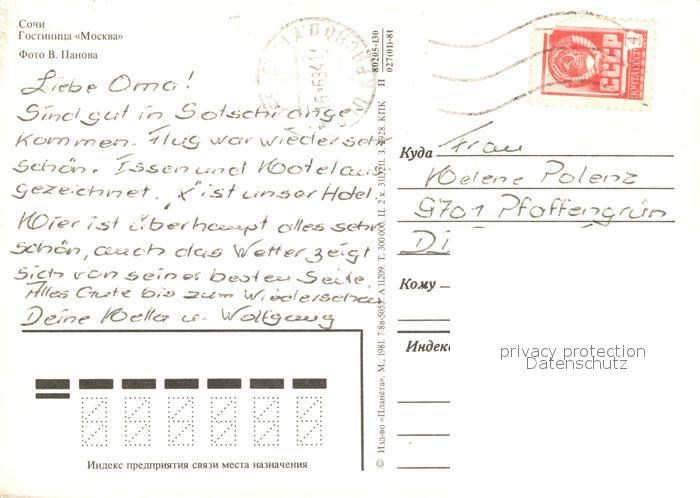 Сочи
Гостиница «Москва»
Фото В. Панова
Liebe Oma!
Sind gut in Sotschi ange
kommen. Flug war wieder sehr
schön. Essen und Hotel aus
gezeichnet. "x" ist unser Hotel.
Hier ist überhaupt alles sehr
schön, auch das Wetter zeigt
sich von seiner besten Seite.
Alles Gute bis zum Wiedersehen
Deine Hella u. Wolfgang
Индекс предприятия связи места назначения
80205-130
027(01)-81
© Изд-во «Планета». М., 1981. 7/8в-5055. А 11209. Т. 300 000. Ц. 2 к. КПК
СССР
4
Куда Frau
Helene Polenz
9701 Pfaffengrün
Кому
Индекс
privacy protection
Datenschutz